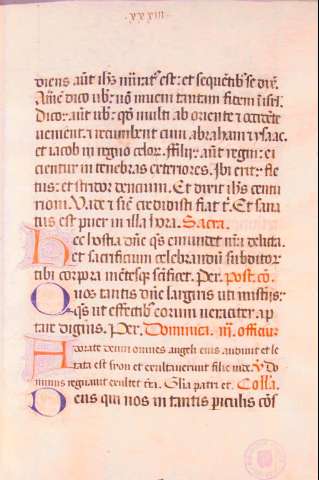 ·xxxiii·
diens aut̄ ih̄s mirat᷒ est: et sequentib᷒ se dix̄.
Am̄e dico vb̄: nō inveni tantam fidem ī isrl̄.
Dico aut̄ vb̄: q̄ multi ab oriente ⁊ occidēte
venient: ⁊ recumbent cum abraham ⁊ ysaac:
et iacob in regno celoꝝ. ffilij aut̄ regni: ei
cientur in tenebras exteriores. Ibi erit fle
tus: et stridor dencium. Et dixit ih̄s centu
rioni. Vade ⁊ sic̄ credidisti fiat t̄. Et sana
tus est puer in illa hora. Sacra.
Hec hostia dn̄e q̄s emundet nr̄a delicta.
et sacrificium celebrandum subditoꝝ
tibi corpora mentesq᷒ sc̄ificet. Per. post. cō.
Quos tantis dn̄e largiris uti misterijs:
q̄s ut effectib᷒ eorum veraciter ap
tare digneris. Per. Dominica. iii. officiū
Adorate deum omnes angeli eius audivit et le
tata est syon et exultaverunt filie iude. V̄ Do
minus regnavit exultet t̄ra. Gl̄ia patri et. Coll̄a.
Deus qui nos in tantis periculis cōs